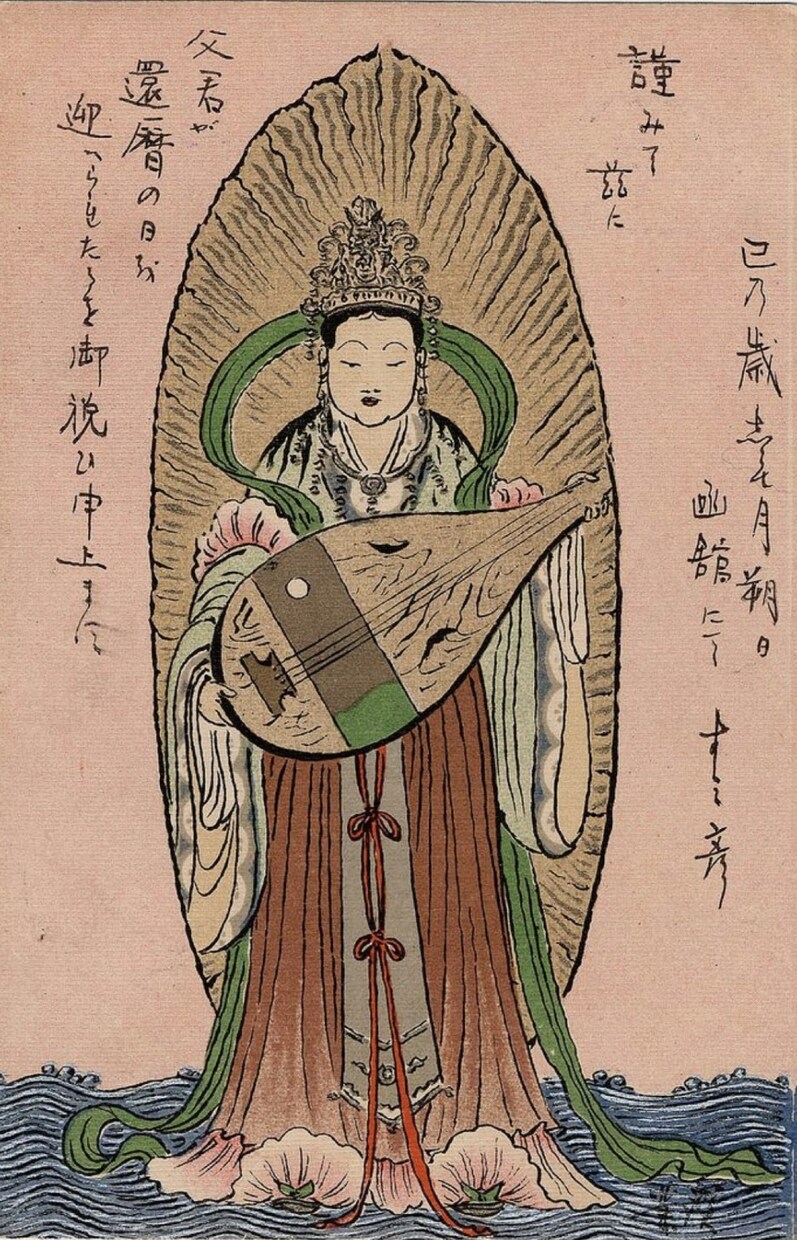 巳乃歳志も月朔日
函館にて
謹みて
茲に
父君が
還暦の日を
迎へられたるを御祝ひ申上ます